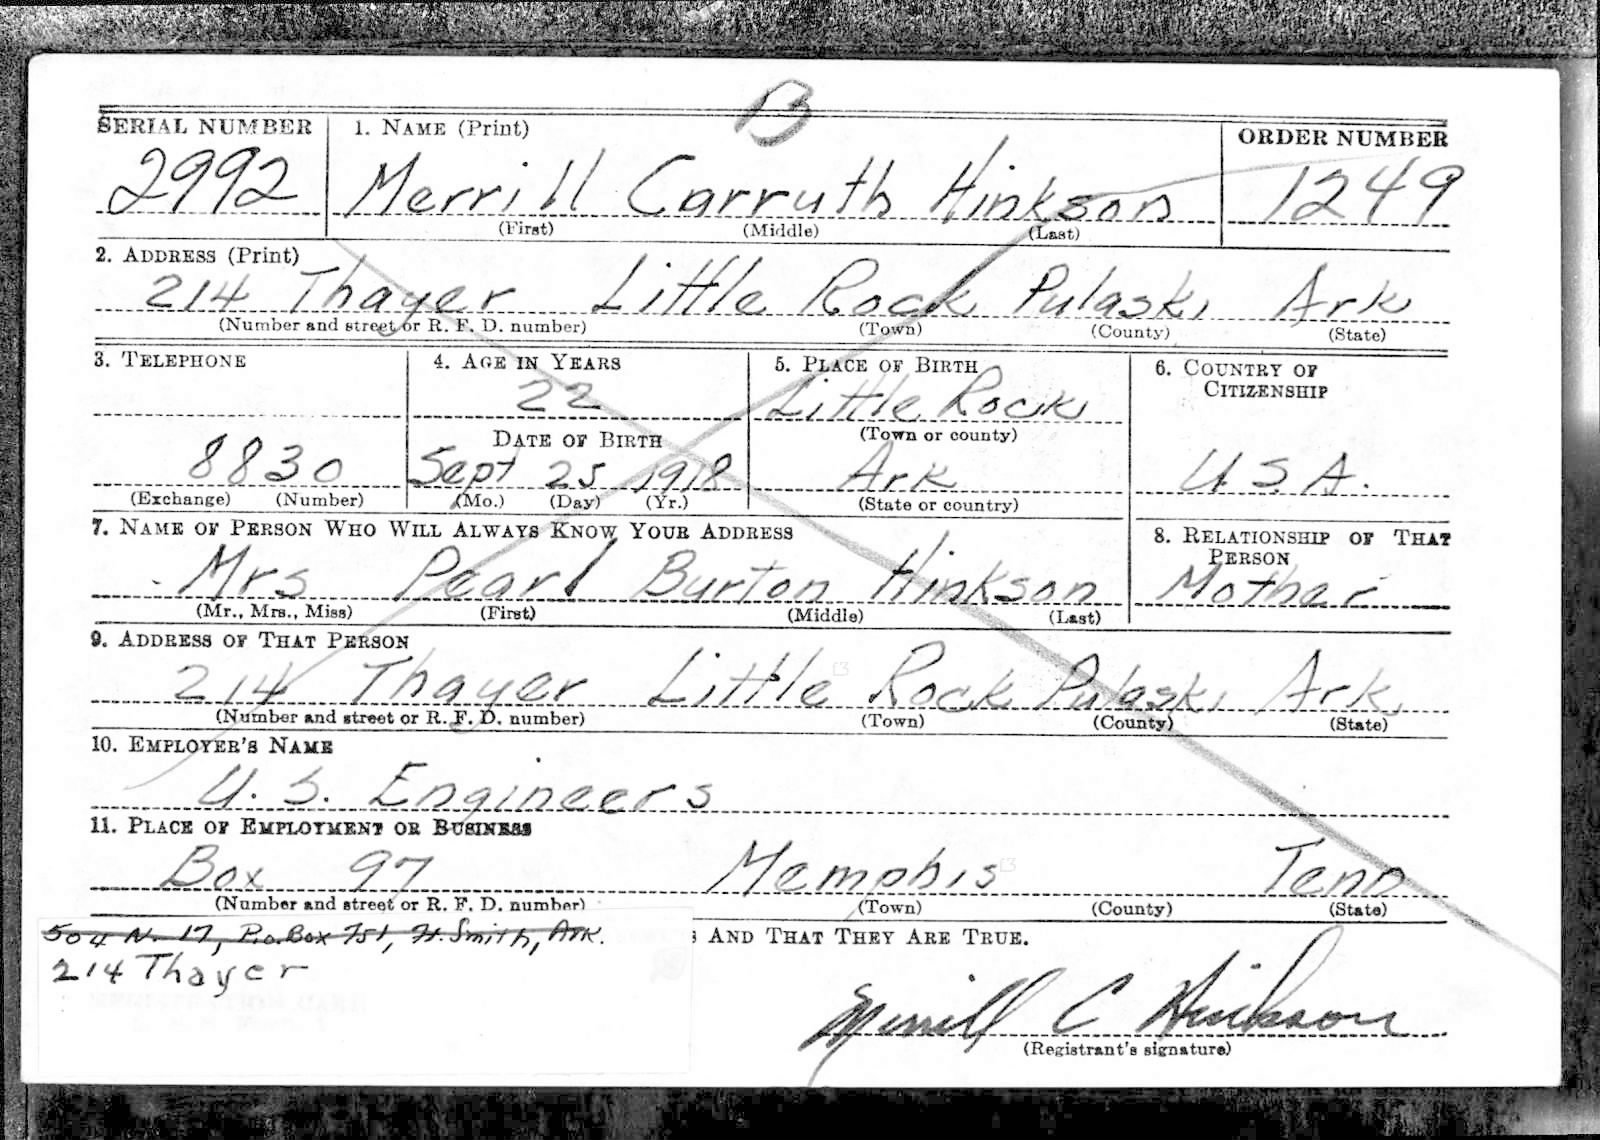 B
SERIAL NUMBER 1. NAME (Print) ORDER NUMBER
2992 Merrill Carruth Hinkson 1249
(First) (Middle) (Last)
2. ADDRESS (Print)
214 Thayer Little Rock Pulaski Ark
(Number and street or R. F. D. number) (Town) (County) (State)
3. TELEPHONE 4. AGE IN YEARS 5. PLACE OF BIRTH 6. COUNTRY OF
CITIZENSHIP
22 Little Rock
DATE OF BIRTH (Town or county)
8830 Sept 25 1918 Ark U.S.A.
(Exchange) (Number) (Mo.) (Day) (Yr.) (State or country)
7. NAME OF PERSON WHO WILL ALWAYS KNOW YOUR ADDRESS 8. RELATIONSHIP OF THAT
PERSON
Mrs Pearl Burton Hinkson Mother
(Mr., Mrs., Miss) (First) (Middle) (Last)
9. ADDRESS OF THAT PERSON
214 Thayer Little Rock Pulaski Ark
(Number and street or R. F. D. number) (Town) (County) (State)
10. EMPLOYER'S NAME
U. S. Engineers
11. PLACE OF EMPLOYMENT OR BUSINESS
Box 97 Memphis Tenn
(Number and street or R. F. D. number) (Town) (County) (State)
504 N. 17, P.o. Box 751, Ft. Smith, Ark. AND THAT THEY ARE TRUE.
214 Thayer
Merrill C Hinkson
(Registrant's signature)